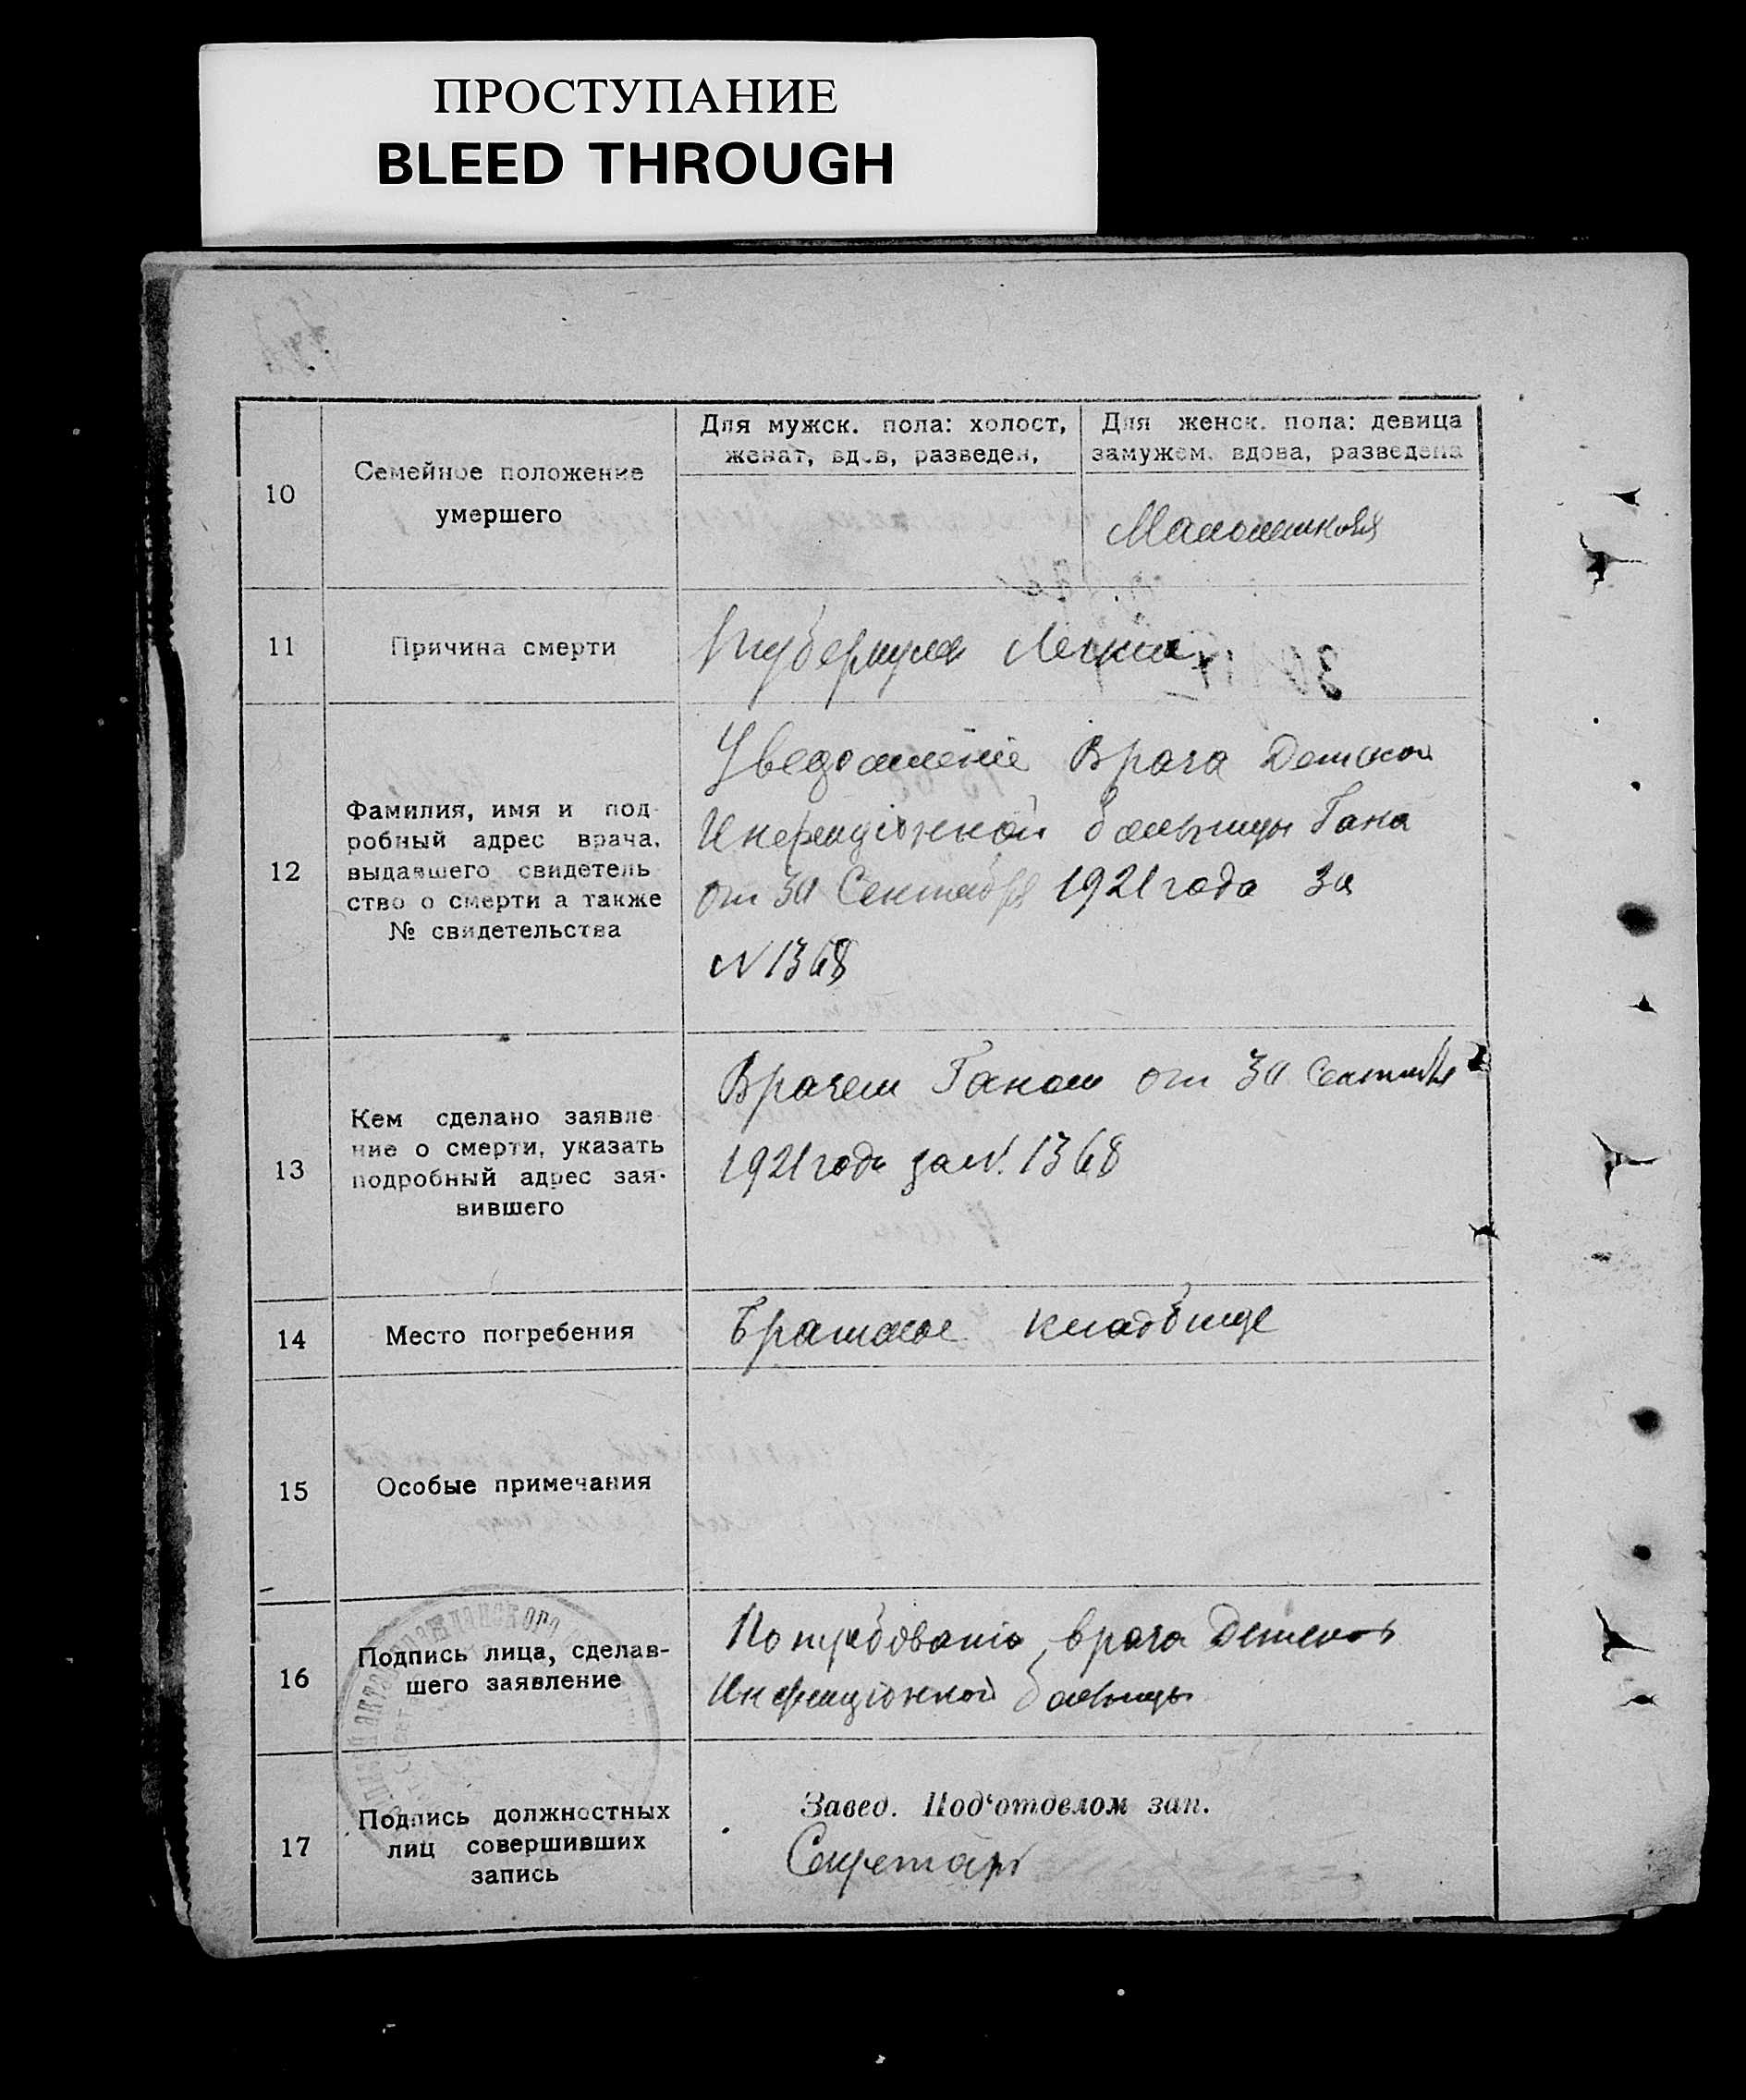 ПРОСТУПАНИЕ
BLEED THROUGH
10
Семейное положение
умершего
Для мужск. пола: холост,
женат, вдов, разведен,
Для женск. пола: девица
замужем, вдова, разведена
Малолетняя
11
Причина смерти
Туберкулез Легких
12
Фамилия, имя и под-
робный адрес врача,
выдавшего свидетель
ство о смерти а также
№ свидетельства
Уведомленіе Врача Детской
Инфекціонной больницы Гана
от 30 Сентября 1921 года за
N 1368
13
Кем сделано заявле-
ние о смерти, указать
подробный адрес зая-
вившего
Врачем Ганом от 30 Сентября
1921 года за N. 1368
14
Место погребения
Братское кладбище
15
Особые примечания
16
Подпись лица, сделав-
шего заявление
По требованію врача Детской
Инфекціонной больницы
17
Подпись должностных
лиц совершивших
запись
Завед. Под‘отделом зап.
Секретарь